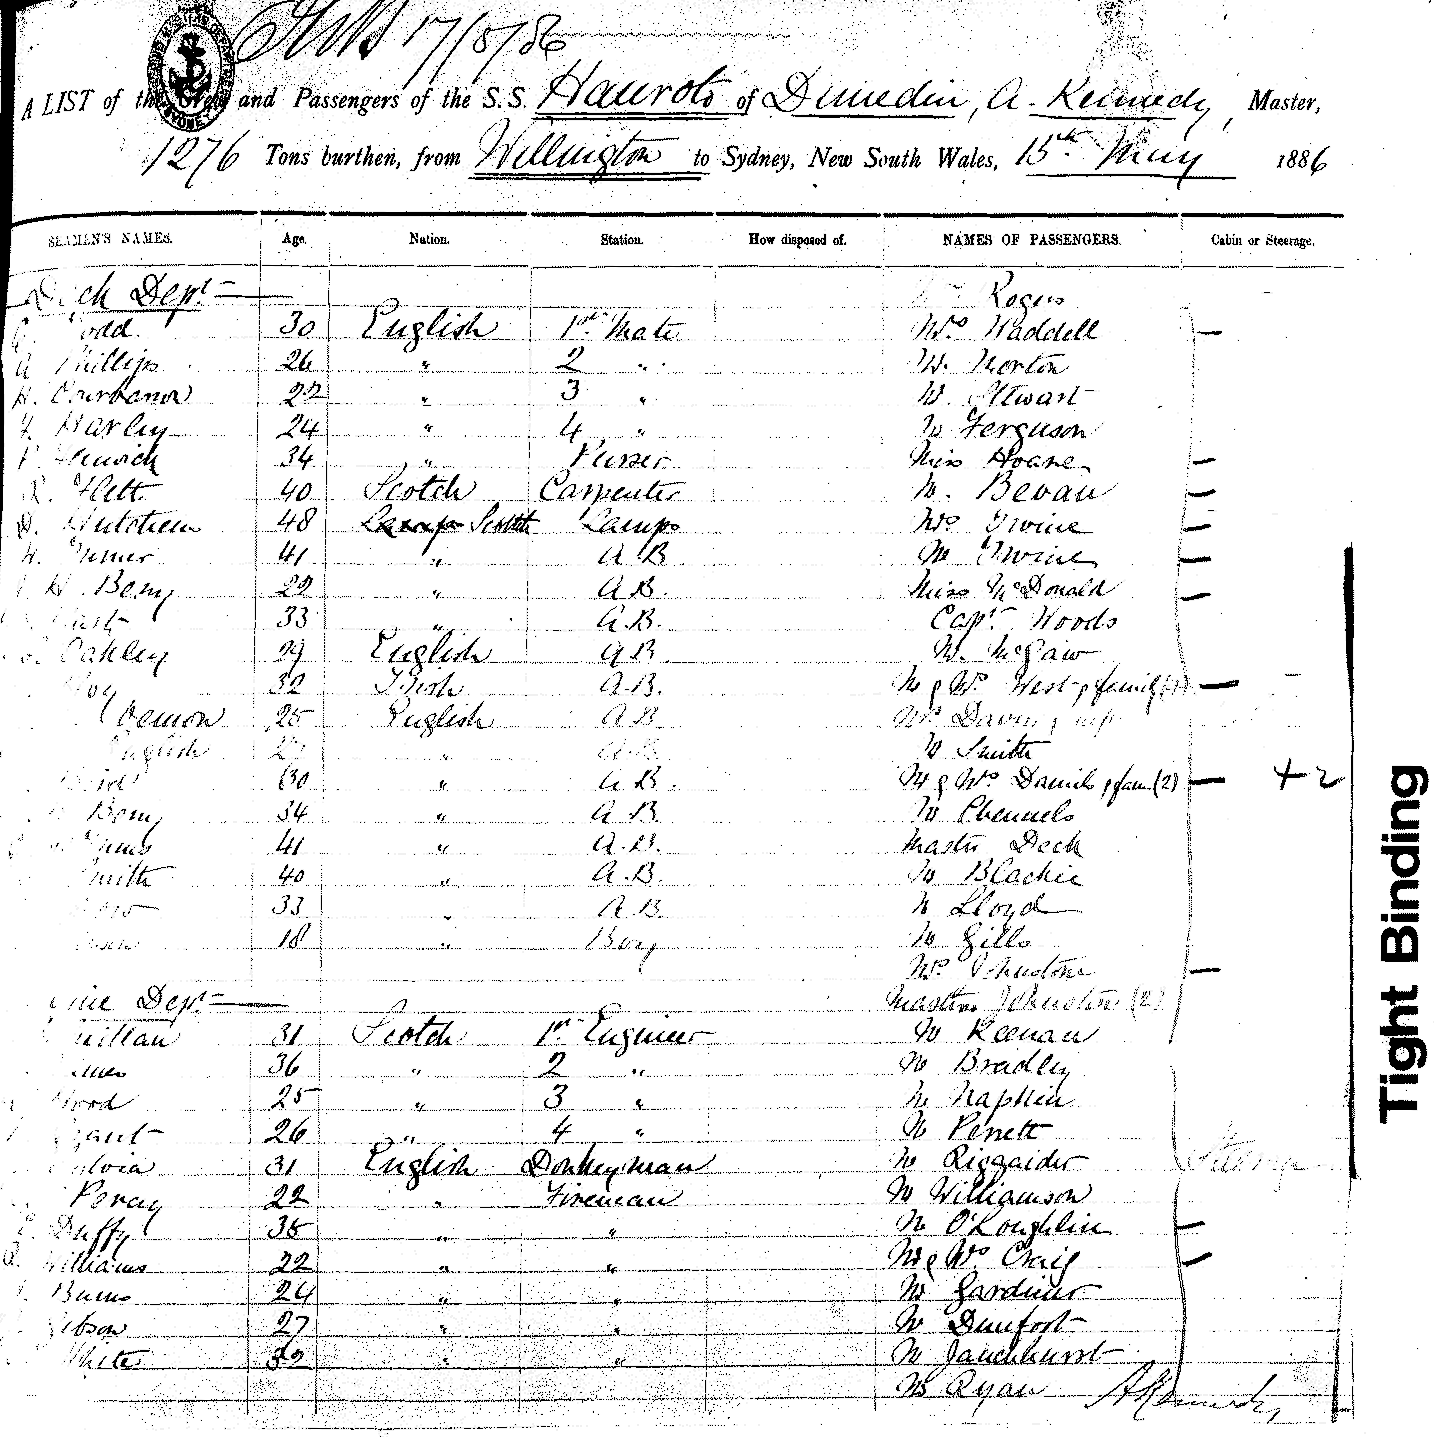 17/5/86
A LIST of the Crew and Passengers of the S.S. Hauroto of Dunedin, A. Kennedy, Master,
1276 Tons burthen, from Wellington to Sydney, New South Wales, 15th May 1886
SEAMEN'S NAMES. Age. Nation. Station. How disposed of. NAMES OF PASSENGERS. Cabin or Steerage.
Deck Dept Rogers
30 English 1st Mate Mrs Waddell
Phillips 26 " 2 " M. Norton
22 " 3 " M. Stewart
Harley 24 " 4 " M Ferguson
Fenwick 34 " Purser Miss Hoare
Flett 40 Scotch Carpenter M. Bevan
48 Scotch Lamps Mrs Irvine
41 " A B M Irvine
Berry 22 " A.B. Miss McDonald
33 " A.B. Capt Woods
Oakley 29 English A B M. McGaw
32 Irish A.B. M & Mrs West & family
25 English A B Mrs
English " M Smith
30 " A B. M & Mrs Daniels & fam (2) + 2
Berry 34 " A.B. M Chennels
41 " A.B. Master Deck
Smith 40 " A.B. M Blackie
33 " A.B. M Lloyd
18 " Boy M Gills
Mrs Johnstone
Dept Masters Johnston (2)
31 Scotch 1st Engineer M Keenan
36 " 2 " M Bradley
Wood 25 " 3 " M Napkin
Grant 26 " 4 " M Perrett
Sylvia 31 English Donkeyman M Riggaider Steerage
Percy 22 " Fireman M Williamson
Duffy 35 " " M O'Loughlin
Williams 22 " " M & Mrs Craig
Burns 24 " " M Gardiner
Gibson 27 " " M Dunfort
White " " M
M Ryan A Kennedy
Tight Binding